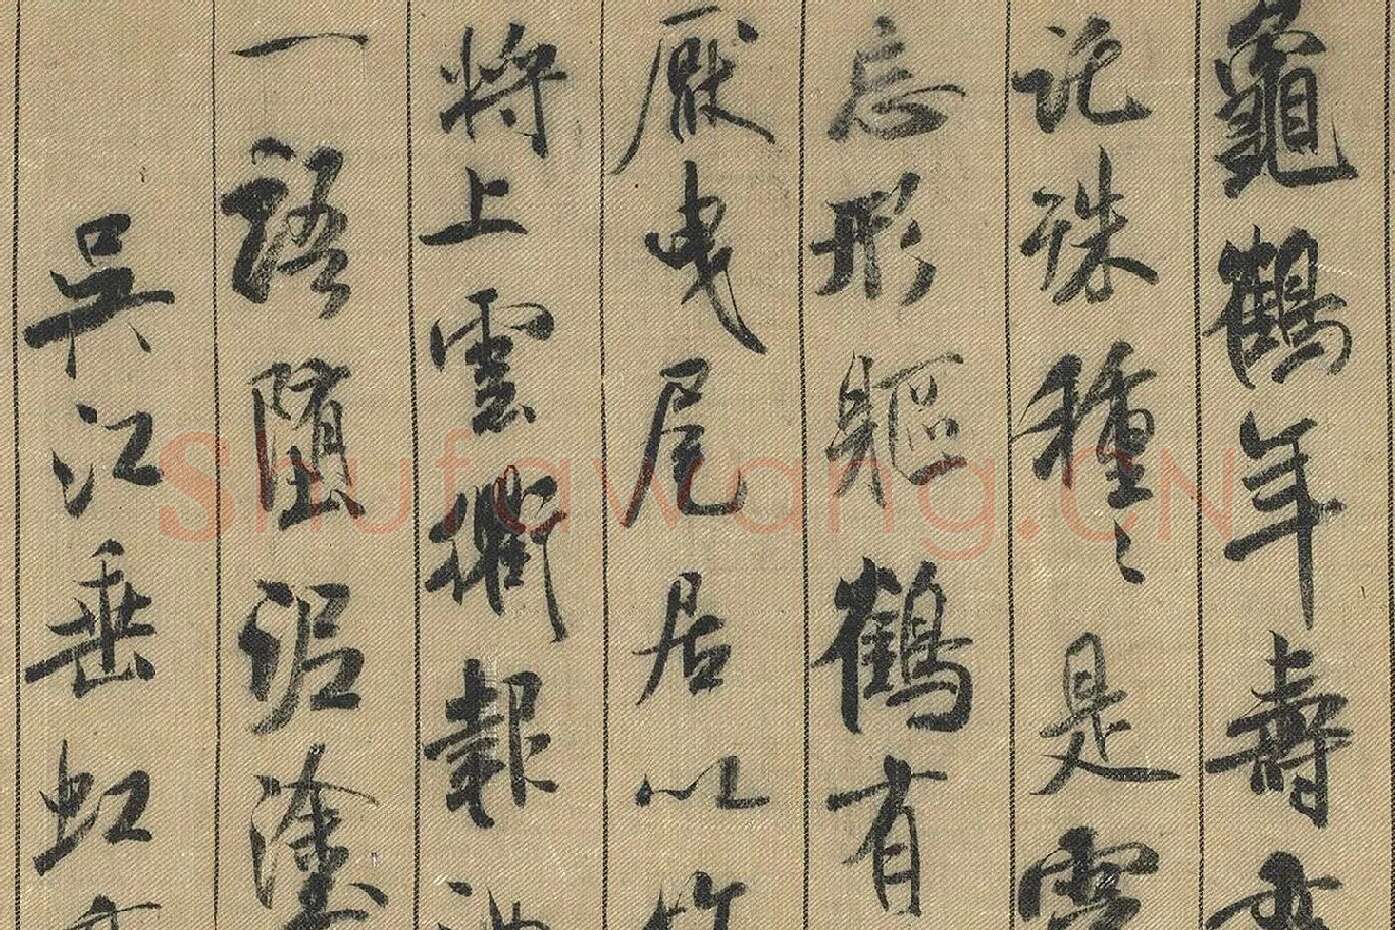 龜鶴年壽
託殊種〻是靈
忘形軀鶴有
厭曳尾居以竹
將上雲衢報
一語墮泥塗
吳江垂虹
Shufawang.CN